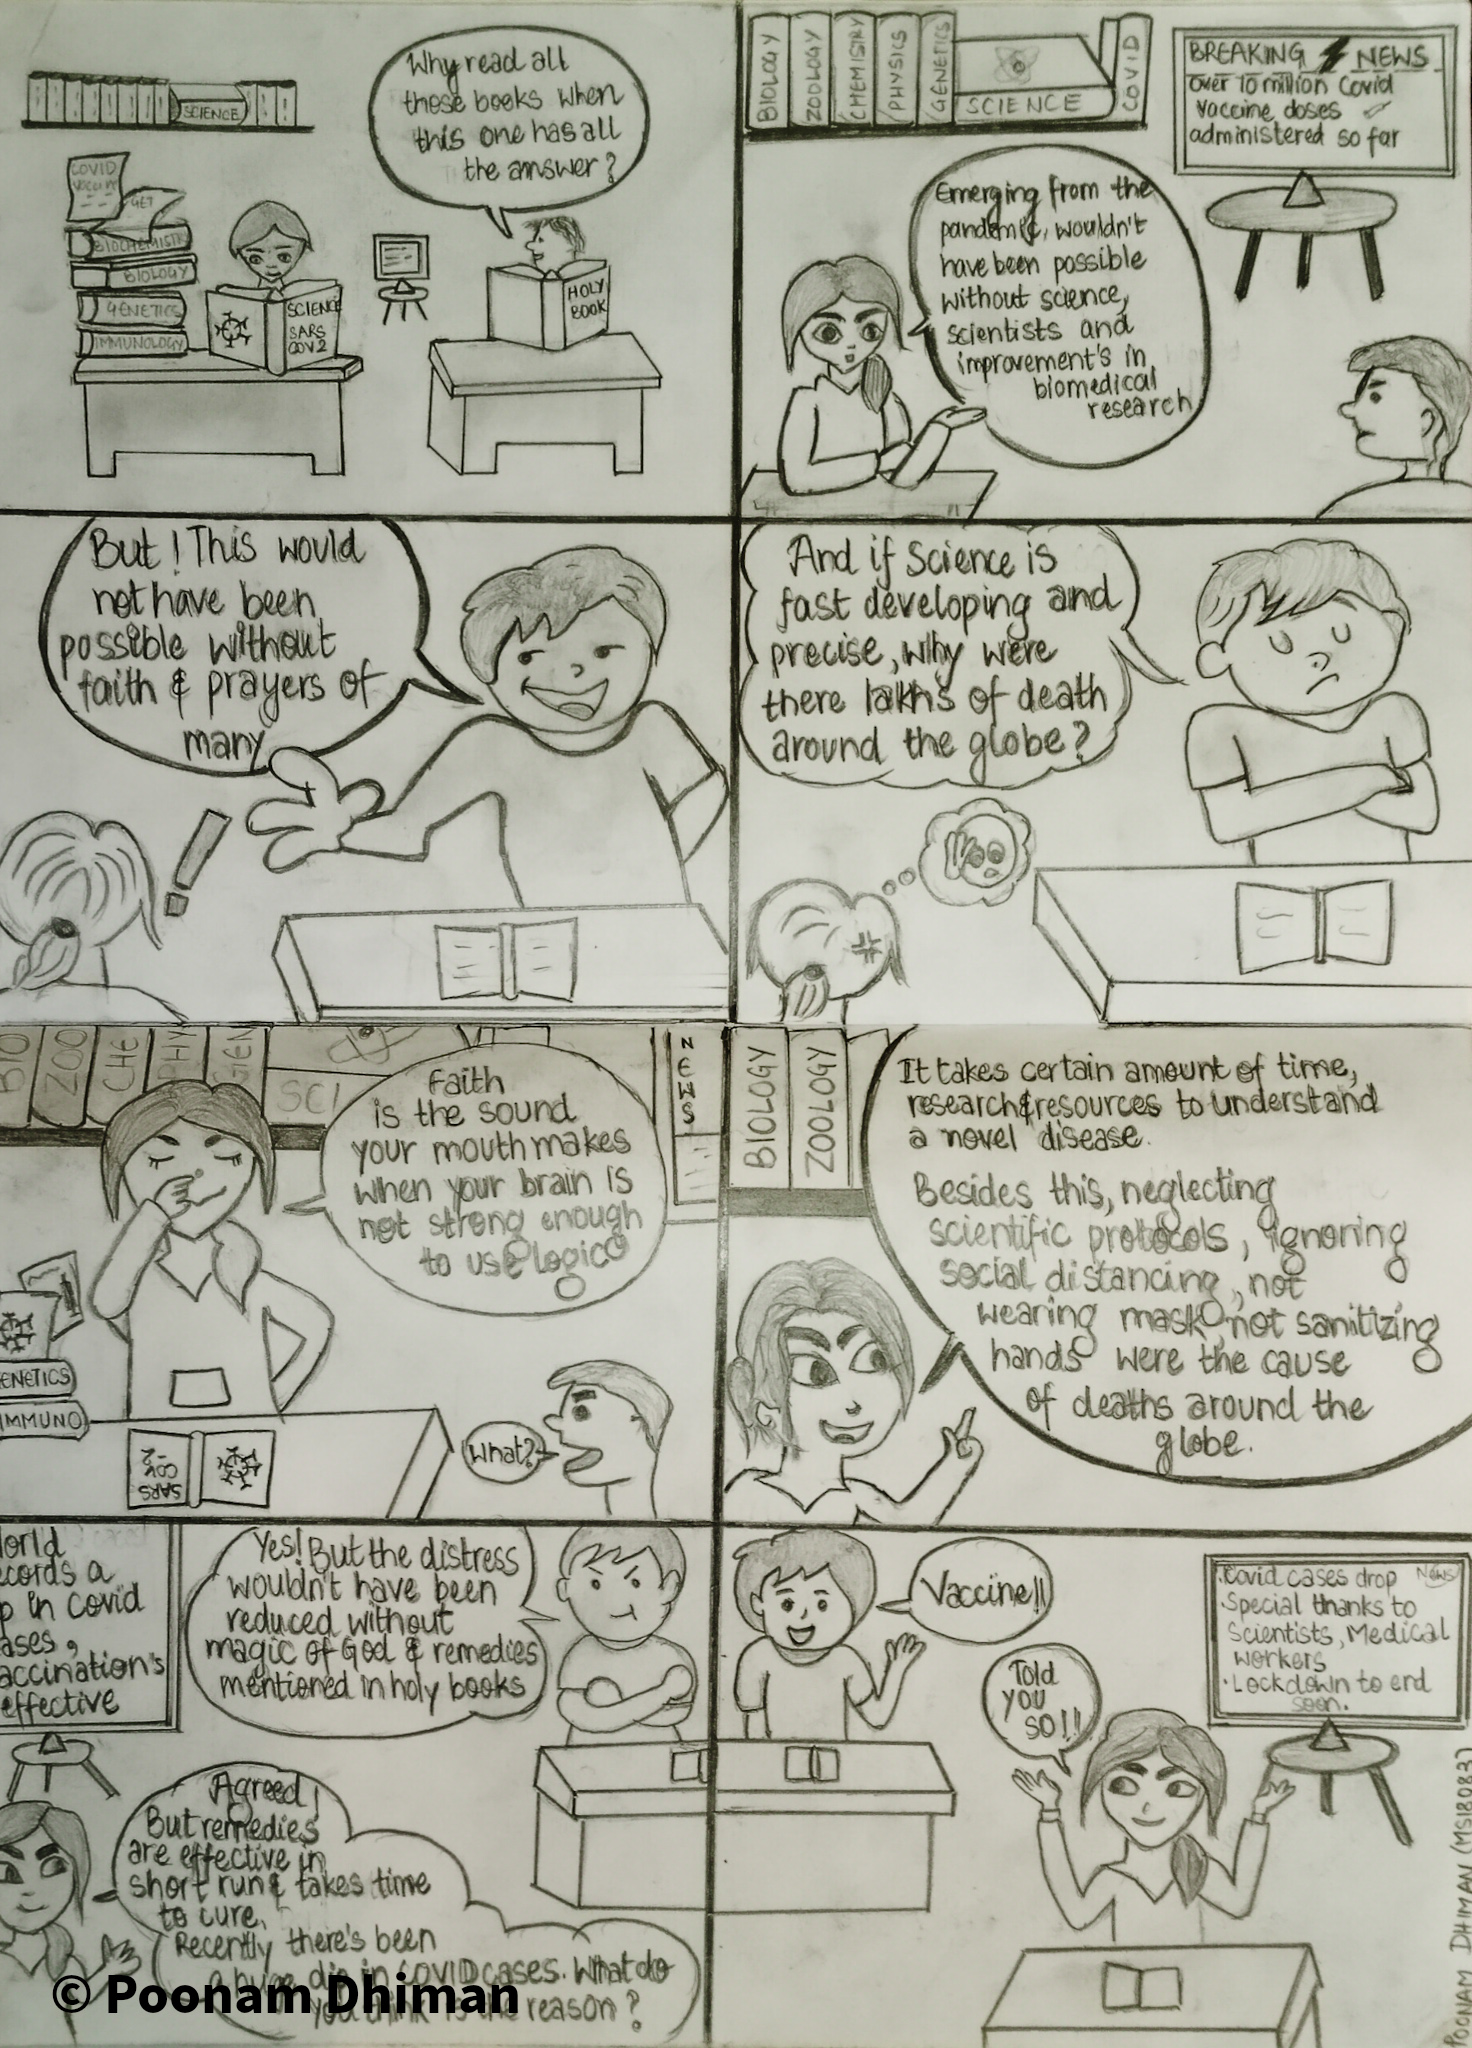 SCIENCE
COVID
VACCINE
GET
BIOCHEMISTRY
BIOLOGY
GENETICS
IMMUNOLOGY
SCIENCE
SARS
COV2
Why read all
those books when
this one has all
the answer?
HOLY
BOOK
BIOLOGY
ZOOLOGY
CHEMISTRY
PHYSICS
GENETICS
SCIENCE
COVID
BREAKING NEWS
Over 10 million Covid
vaccine doses
administered so far
Emerging from the
pandemic, wouldn't
have been possible
without science,
scientists and
improvement's in
biomedical
research
But! This would
not have been
possible without
faith & prayers of
many
!
And if Science is
fast developing and
precise, why were
there lakh's of death
around the globe?
BIO
ZOO
CHE
PHY
GEN
SCI
NEWS
Faith
is the sound
your mouth makes
when your brain is
not strong enough
to use logic
ENETICS
IMMUNO
SARS
COV-2
What?
BIOLOGY
ZOOLOGY
It takes certain amount of time,
research & resources to understand
a novel disease.
Besides this, neglecting
scientific protocols, ignoring
social distancing, not
wearing mask, not sanitizing
hands were the cause
of deaths around the
globe.
orld
ecords a
p in covid
ases,
accination's
effective
Yes! But the distress
wouldn't have been
reduced without
magic of God & remedies
mentioned in holy books
Agreed!
But remedies
are effective in
short run & takes time
to cure.
Recently there's been
a huge dip in COVID cases. What do
you think is the reason?
Vaccine!!
Told
you
SO!!
Covid cases drop News
Special thanks to
Scientists, Medical
workers
Lockdown to end
soon.
POONAM DHIMAN (MS18083)
© Poonam Dhiman